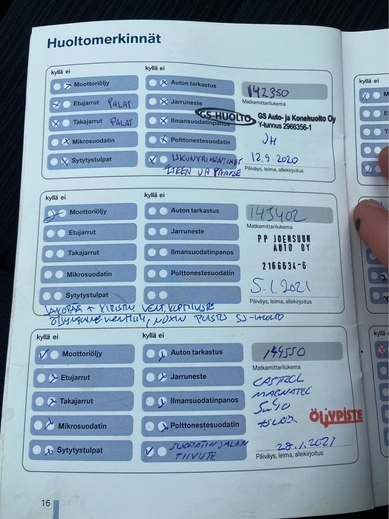 Huoltomerkinnät
kyllä ei
kyllä ei
Moottoriöljy
Auton tarkastus
142350
Matkamittarilukema
Etujarrut PALAT
Jarruneste
GS-HUOLTO
GS Auto- ja Konehuolto Oy
Y-tunnus 2966356-1
Takajarrut PALAT
Ilmansuodatinpanos
Mikrosuodatin
Polttonestesuodatin
JH
Sytytystulpat
12.9 2020
Päiväys, leima, allekirjoitus
kyllä ei
kyllä ei
Moottoriöljy
Auton tarkastus
143402
Matkamittarilukema
Etujarrut
Jarruneste
PP JOENSUUN
AUTO OY
Takajarrut
Ilmansuodatinpanos
2166634-6
Mikrosuodatin
Polttonestesuodatin
5.1.2021
Sytytystulpat
Päiväys, leima, allekirjoitus
kyllä ei
kyllä ei
Moottoriöljy
Auton tarkastus
Matkamittarilukema
Etujarrut
Jarruneste
CASTROL
MAGNATEC
Takajarrut
Ilmansuodatinpanos
5w40
ÖLJYPISTE
Mikrosuodatin
Polttonestesuodatin
Sytytystulpat
SUODATIN JALAN
TIIVISTE
Päiväys, leima, allekirjoitus
16